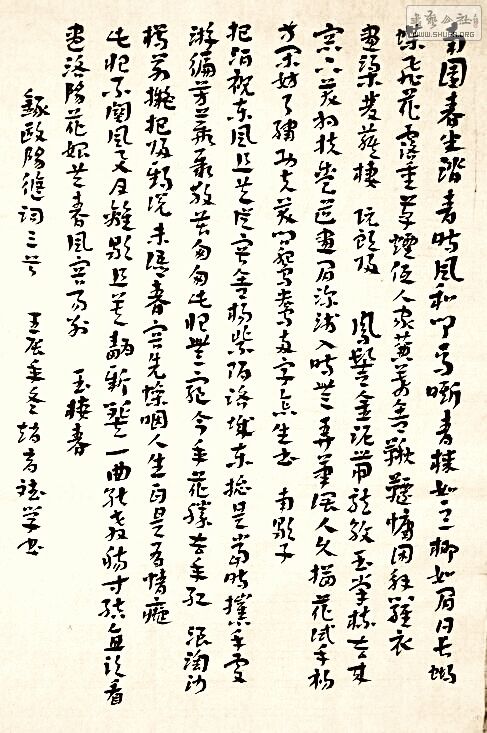 書藝公社
WWW.SHUFA.ORG
南園春半踏青時風和聞馬嘶青梅如豆柳如眉日長蝴
蝶飛花露重草煙低人家簾幕垂鞦韆慵困解羅衣
畫梁雙燕棲 阮郎歸 鳳髻金泥帶龍紋玉掌梳去來
窗下笑相扶愛道畫眉深淺入時無弄筆偎人久描花試手初
等閒妨了繡功夫笑問鴛鴦兩字怎生書 南歌子
把酒祝東風且共從容垂楊紫陌洛城東總是當時攜手處
游遍芳叢聚散苦匆匆此恨無窮今年花勝去年紅 浪淘沙
樽前擬把歸期說未語春容先慘咽人生自是有情癡
此恨不關風與月離歌且莫翻新闋一曲能教腸寸結直須看
盡洛陽花始共春風容易別 玉樓春
錄歐陽修詞三首 壬辰年冬 學書